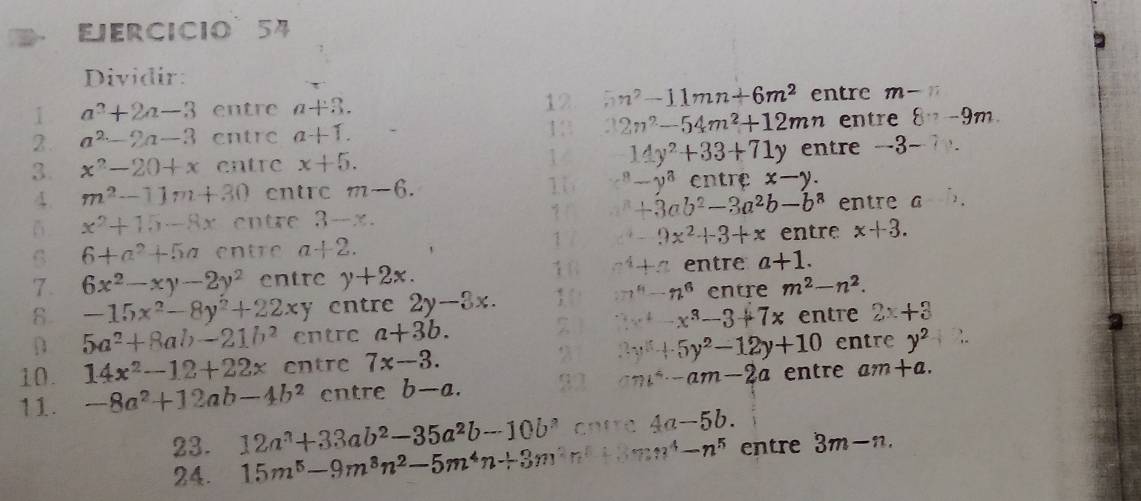 EJERCICIO 54
Dividir:
1 a²+2a—3 entre a+3.
2. a²—2a—3 entre a+1.
3. x²—20+x entre x+5.
4 m²—11m+30 entre m—6.
x²+15—8x entre 3—x.
6+a²+5a entre a+2.
7. 6x²—xy—2y² entre y+2x.
8. —15x²—8y²+22xy entre 2y—3x.
5a²+8ab—21b² entre a+3b.
10. 14x²—12+22x entre 7x—3.
11. —8a²+12ab—4b² entre b—a.
12 5n²—11mn+6m² entre m—n
32n²—54m²+12mn entre 8n—9m.
14y²+33+71y entre —3—7y.
x³—y³ entre x—y.
+3ab²—3a²b—b³ entre a
—9x²+3+x entre x+3.
a⁴+a entre a+1.
—n⁶ entre m²—n².
—x³—3+7x entre 2x+3
+5y²—12y+10 entre y²
—am—2a entre am+a.
23. 12a³+33ab²—35a²b—10b³ entre 4a—5b.
24. 15m⁵—9m³n²—5m⁴n+3m²n³+3mn⁴—n⁵ entre 3m—n.